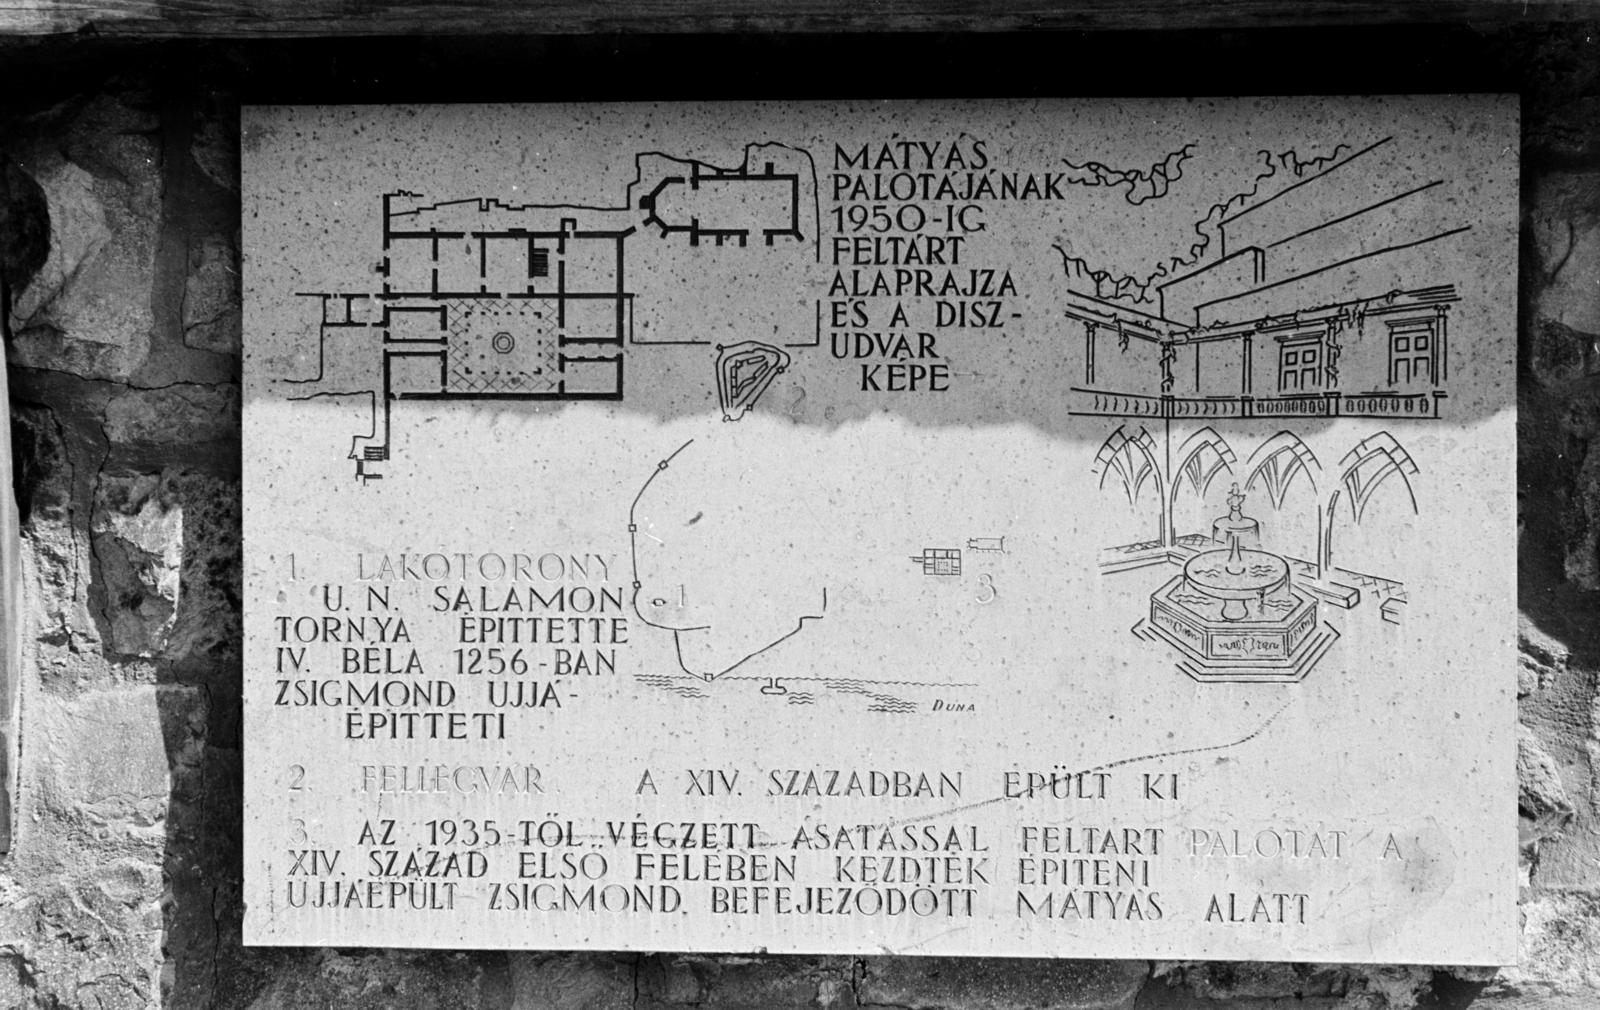 MÁTYÁS
PALOTÁJÁNAK
1950-IG
FELTÁRT
ALAPRAJZA
ÉS A DISZ-
UDVAR
KÉPE
2
1
3
DUNA
1. LAKÓTORONY
U. N. SALAMON
TORNYA ÉPITTETTE
IV. BÉLA 1256-BAN
ZSIGMOND UJJÁ-
ÉPITTETI
2. FELLEGVÁR A XIV. SZÁZADBAN ÉPÜLT KI
3. AZ 1935-TŐL VÉGZETT ÁSATÁSSAL FELTÁRT PALOTÁT A
XIV. SZÁZAD ELSŐ FELÉBEN KEZDTÉK ÉPITENI
UJJÁÉPÜLT ZSIGMOND, BEFEJEZŐDÖTT MÁTYÁS ALATT